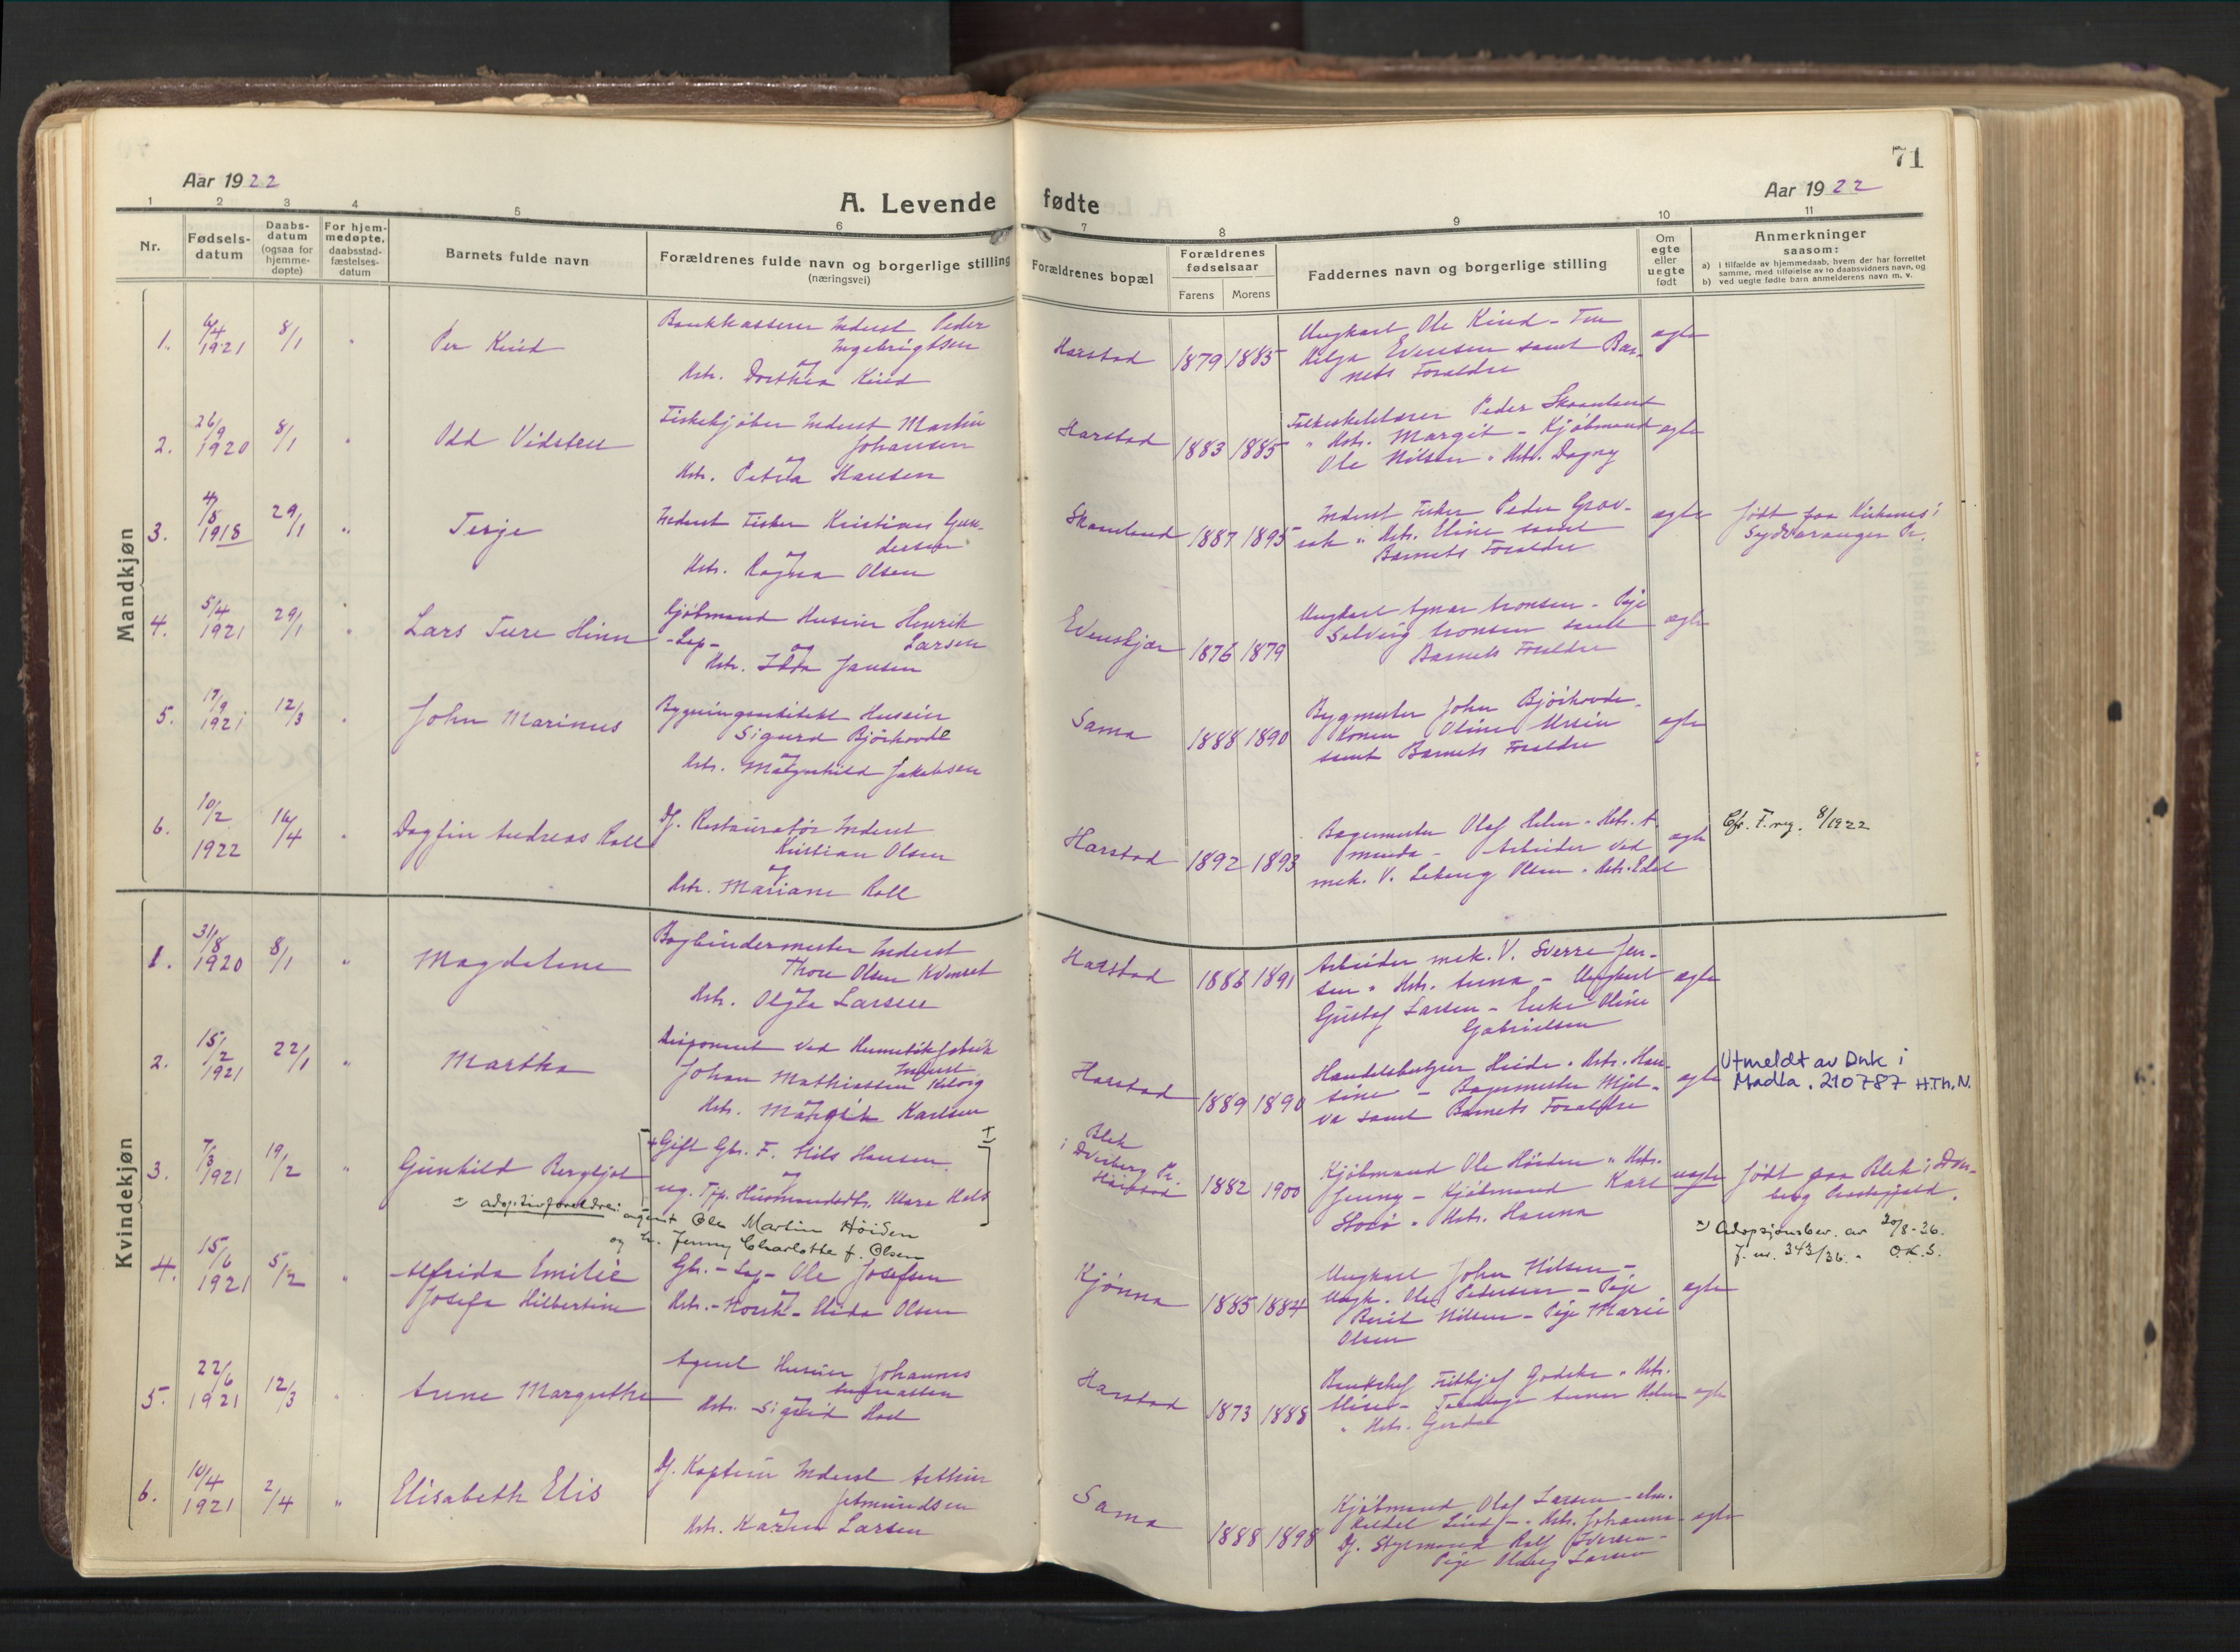 71
Aar 1922
A. Levende fødte
Aar 1922
1 2 3 4 5 6 7 8 9 10 11
Nr.
Fødsels-
datum
Daabs-
datum
(ogsaa for
hjemme-
døpte)
For hjem-
medøpte,
daabsstad-
fæstelses-
datum
Barnets fulde navn
Forældrenes fulde navn og borgerlige stilling
(næringsvei)
Forældrenes bopæl
Forældrenes
fødselsaar
Farens Morens
Faddernes navn og borgerlige stilling
Om
egte
eller
uegte
født
Anmerkninger
saasom:
a) i tilfælde av hjemmedaab, hvem der har forrettet
samme, med tilføielse av to daabsvidners navn, og
b) ved uegte fødte barn anmelderens navn m. v.
Mandkjøn
1. 6/4 1921 8/1 " Per Kind
Bankkasserer Inderst Peder
Ingebrigtsen
og
Hstr. Dorthea Kind
Harstad 1879 1885
Ungkarl Ole Kind - Fru
Helga Evensen samt Bar-
nets Foraldre
egte
2. 26/9 1920 8/1 " Odd Vidsteen
Fiskekjøber Inderst Martin
Johansen
og
Hstr. Petra Hansen
Harstad 1883 1885
Peder Skaanland
" Hstr. Margit - Kjøbmand
Ole Nilsen " Hstr. Dagny
egte
3. 4/8 1918 29/1 " Terje
Inderst Fisker Kristian Gun-
dersen
og
Hstr. Ragna Olsen
Skaanland 1887 1895
Inderst Fisker Peder Grov-
" Hstr. Eline samt
Barnets Foraldre
egte
født paa Kirkenes i
Sydvaranger Pr.
4. 5/4 1921 29/1 " Lars Ture Hinn
Kjøbmand Huseier Henrik
- Lap - Larsen
og
Hstr. Ilda Jansen
Evenskjær 1876 1879
Ungkarl Agnar Aronsen - Pige
Solveig Aronsen samt
Barnets Foraldre
egte
5. 17/9 1921 12/3 " John Marinus
Bygningsarkitekt Husier
Sigurd Bjørhovde
og
Hstr. Magnhild Jakobsen
Sama 1888 1890
Bygmester John Bjørhovde.
Konen Oline Ursin
samt Barnets Foraldre
egte
6. 10/2 1922 16/4 " Dagfin Andreas Roll
Dj. Restauratør Inderst
Kristian Olsen
og
Hstr. Mariane Roll
Harstad 1892 1893
Bagermester Olaf Helen " Hstr. A-
manda - Arbeider ved
mek. V. Olsen " Hstr. Edel
egte
Cfr. F. reg. 8/1922
Kvindekjøn
1. 31/8 1920 8/1 " Magdelene
Bogbindermester Inderst
Thore Olsen Kvemset
og
Hstr. Olga Larsen
Harstad 1886 1891
Arbeider mek. V. Sverre Jen-
sen " Hstr. Anna - Ungkarl
Gustaf Larsen - Enke Oline
Gabrielsen
egte
2. 15/2 1921 22/1 " Martha
Disponent ved Hermetikfabrik
Inderst
Johan Mathiassen
og
Hstr. Margit Karlsen
Harstad 1889 1890
Handelsbetjen Heide " Hstr. Han-
sine - Bagermester Mjel-
va samt Barnets Foraldre
egte
Utmeldt av Dnk i
Madla. 210787 H.Th.N.
3. 7/3 1921 19/2 " Gunhild Bergljot
Gift Gbr. F. Nils Hansen
og
ug. Tjp. Husmandsdtr. Klara Hals
± adoptivforeldre: agent Ole Martin Høiden
og h. Jenny Charlotte f. Olsen
Blek
i Dverberg Pr.
Harstad
1882 1900
Kjøbmand Ole Høiden " Hstr.
Jenny - Kjøbmand Karl
" Hstr. Hanna
uegte
født paa Blek i Dver-
berg Prestegjeld.
±) Adopsjonsbev. av 20/8-36.
J. nr. 343/36. O.K.S.
4. 15/6 1921 5/2 " Alfrida Emilie
Josefa Hilbertine
Gbr. - Lap - Ole Josefsen
og
Hstr. - Norsk - Olida Olsen
Kjønna 1885 1884
Ungkarl John Nilsen -
Ungk. Ole Pedersen - Pige
Berit Nilsen - Pige Marie
Olsen
egte
5. 22/6 1921 12/3 " Anne Margrethe
Agent Husier Johannes
og
Hstr. Sigrid Hoel
Harstad 1873 1888
Bankchef Fridtjof Godske " Hstr.
Elise - Helen
" Hstr. Gerda
egte
6. 10/4 1921 2/4 " Elisabeth Elis
Dj. Kaptein Inderst Arthur
Jetmundsen
og
Hstr. Karen Larsen
Sama 1888 1898
Kjøbmand Olaf Larsen -
Lind - " Hstr. Johanna -
Dj. Styrmand Rolf Iversen -
Pige Larsen
egte